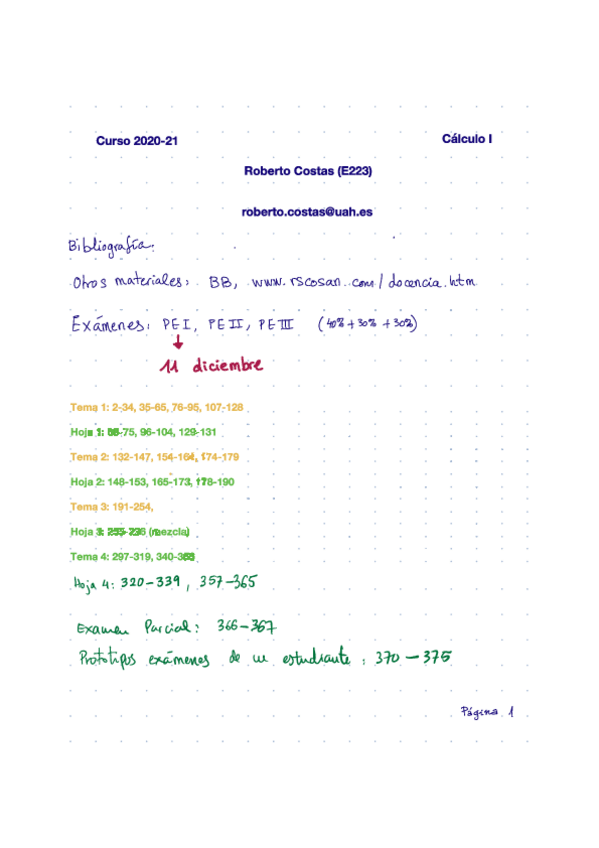 Curso 2020-21 Cálculo I
Roberto Costas (E223)
roberto.costas@uah.es
Bibliografía:
Otros materiales: BB, www.rscosan.com/docencia.htm
Exámenes: PEI, PEII, PEIII (40% + 30% + 30%)
11 diciembre
Tema 1: 2-34, 35-65, 76-95, 107-128
Hoja 1: 75, 96-104, 129-131
Tema 2: 132-147, 154-164, 174-179
Hoja 2: 148-153, 165-173, 178-190
Tema 3: 191-254,
Hoja 3: (mezcla)
Tema 4: 297-319,
Hoja 4: 320-339, 357-365
Examen Parcial: 366-367
Prototipos exámenes de un estudiante: 370-375
Página 1